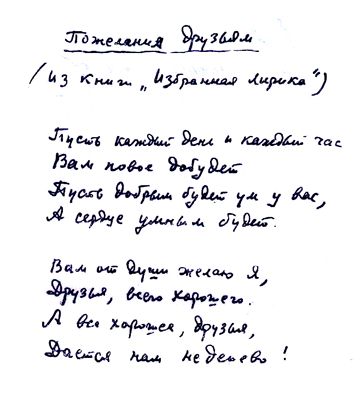 Пожелания друзьям
(из книги „Избранная лирика")
Пусть каждый день и каждый час
Вам новое добудет
Пусть добрым будет ум у вас,
А сердце умным будет.
Вам от души желаю я,
Друзья, всего хорошего.
А все хорошее, друзья,
Дается нам не дешево!